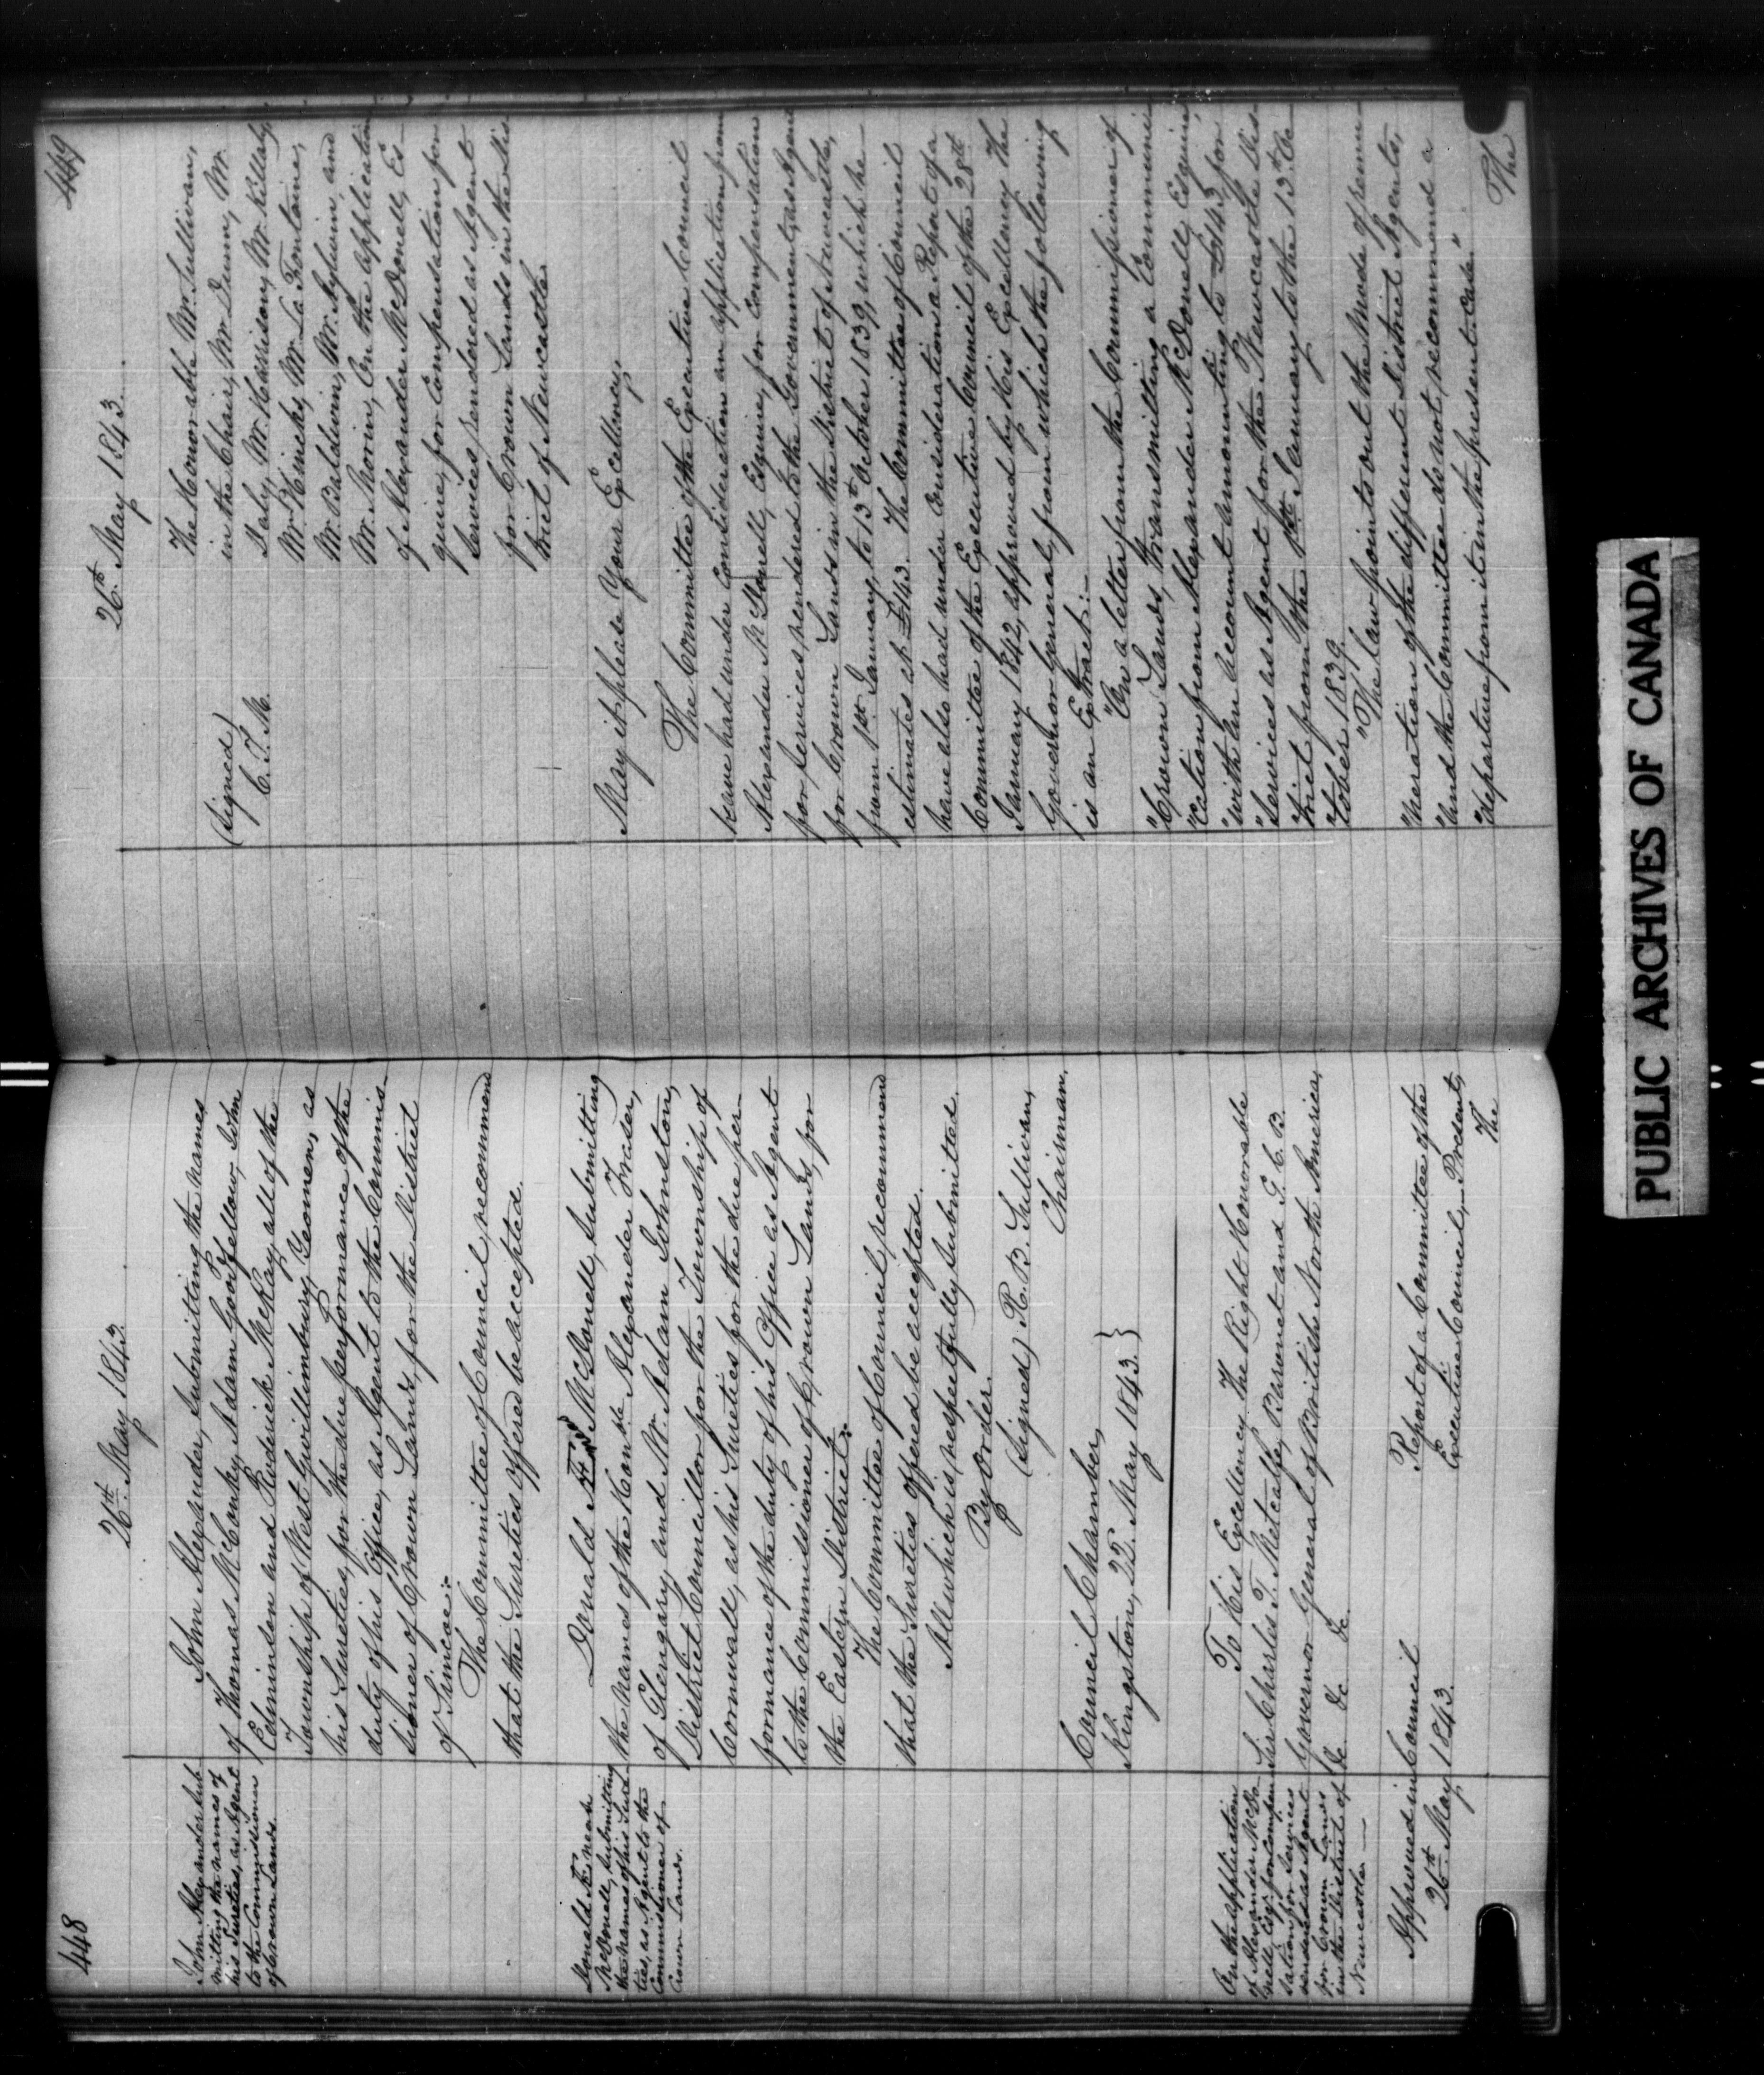 448
26th May 1843.
John Alexander sub-
mitting the names of
his Sureties, as Agent
to the Commissioner
of Crown Lands.
John Alexander, submitting the names
of Thomas McConky, Adam Goodfellow, John
Edminson and Roderick McKay, all of the
Township of West Gwillimbury, Yeomen, as
his Sureties, for the due performance of the
duty of his Office, as Agent to the Commis-
sioner of Crown Lands, for the District
of Simcoe:
The Committee of Council, recommend
that the Sureties offered be accepted.
Donald Æneas
McDonell, submitting
the names of his Sure-
ties, as Agent to the
Commissioner of
Crown Lands.
Donald McDonell, submitting
the names of the Honble Alexander Frazer,
of Glengary, and Mr. Adam Johnston,
District Councillor for the Township of
Cornwall, as his Sureties for the due per-
formance of the duty of his Office as Agent
to the Commissioner of Crown Lands, for
the Eastern District:
The Committee of Council, recommend
that the Sureties offered be accepted.
All which is respectfully submitted.
By Order.
(Signed) R. B. Sullivan,
Chairman.
Council Chamber,
Kingston, 25th May 1843.}
On the application
of Alexander McDo-
nell, Esqr. for Compen-
sation for Services
rendered as Agent
for Crown Lands
in the District of
Newcastle. —
To His Excellency The Right Honorable
Sir Charles T. Metcalfe, Baronet and G. C. B.
Governor General of British North America,
&c &c &c.
Approved in Council
26th May 1843.
Report of a Committee of the
Executive Council, Present,
The
449
26th May 1843.
(Signed)
C. T. M.
The Honorable Mr. Sullivan,
in the Chair, Mr. Dunn, Mr.
Daly, Mr. Harrison, Mr. Killaly,
Mr. Hincks, Mr. La Fontaine,
Mr. Baldwin, Mr. Aylwin, and
Mr. Morin, On the application
of Alexander McDonell, Es-
quire, for Compensation for
Services rendered as Agent
for Crown Lands in the Dis-
trict of Newcastle.
May it please Your Excellency,
The Committee of the Executive Council
have had under consideration an application from
Alexander McDonell, Esquire, for Compensation
for Services, rendered to the Government, as Agent
for Crown Lands in the District of Newcastle,
from 1st January, to 13th October 1839, which he
estimates at £143. The Committee of Council
have also had under consideration a Report of a
Committee of the Executive Council of the 28th
January 1842, approved by His Excellency The
Governor General, from which the following
is an Extract:—
"On a letter from the Commissioner of
"Crown Lands, transmitting a Communi-
"cation from Alexander McDonell, Esquire,
"with an Account amounting to £143, for
"Services as Agent for the Newcastle Dis-
"trict from the 1st January to the 13th Oc-
"tober 1839.
"The law points out the mode of remu-
"neration of the different District Agents,
"and the Committee do not recommend a
"departure from it in the present Case."
The
PUBLIC ARCHIVES OF CANADA